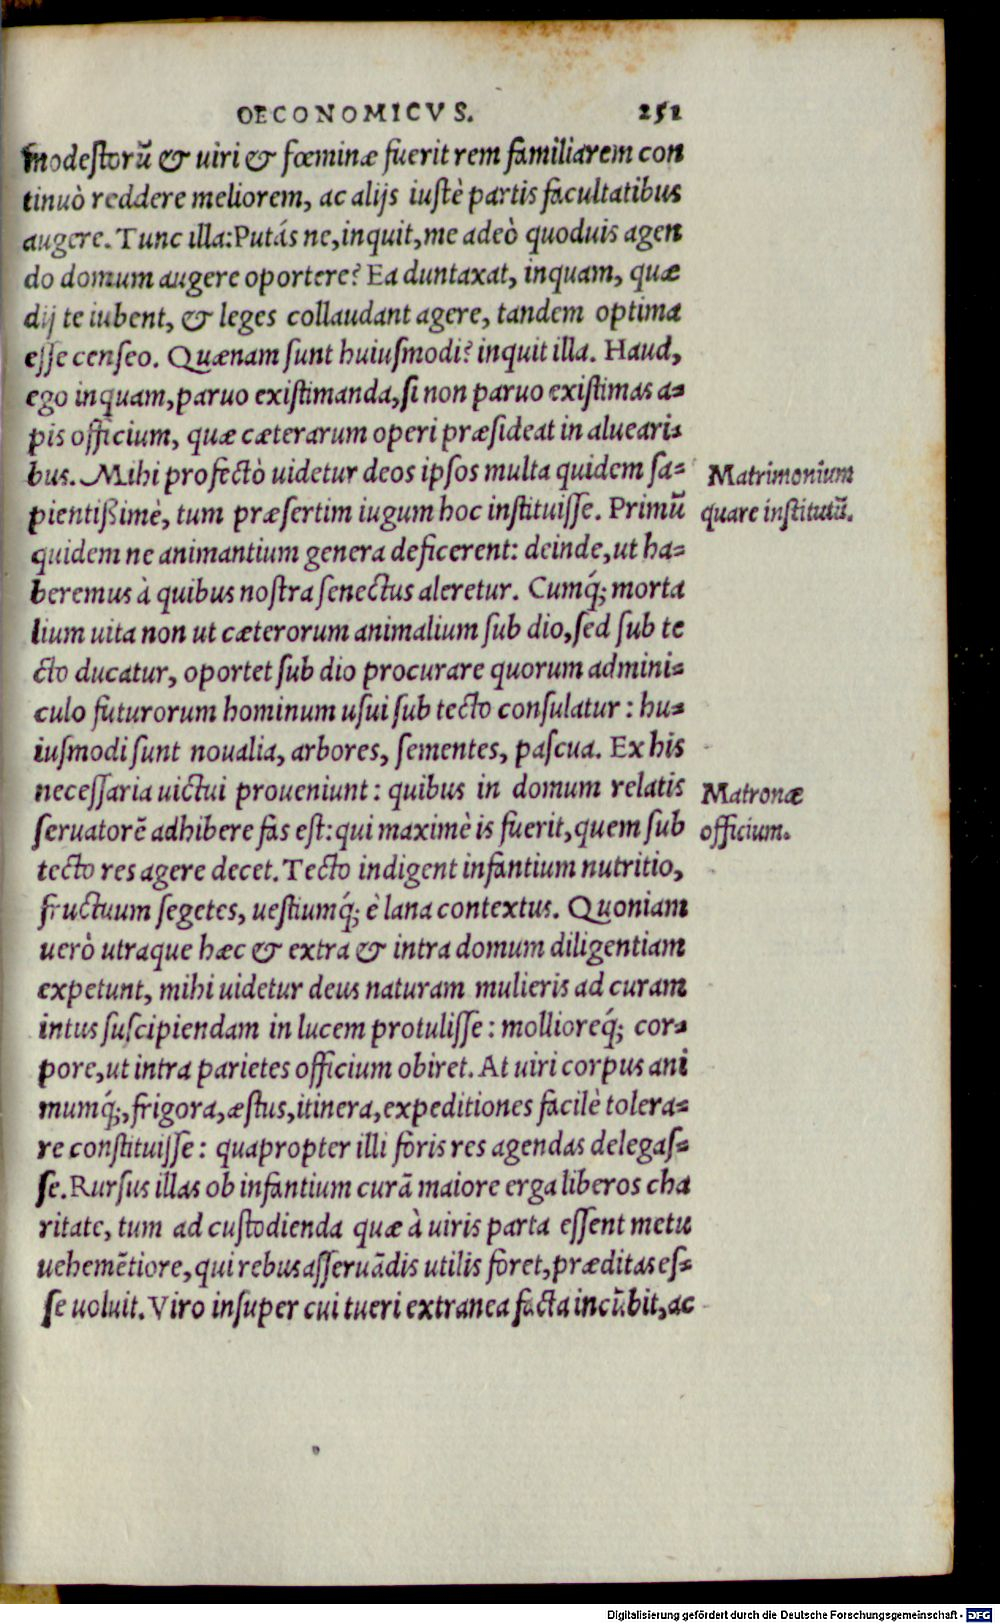 OECONOMICVS. 251
modestorũ & uiri & fœminæ fuerit rem familiarem con
tinuò reddere meliorem, ac alijs iustè partis facultatibus
augere. Tunc illa: Putás ne, inquit, me adeò quoduis agen
do domum augere oportere? Ea duntaxat, inquam, quæ
dij te iubent, & leges collaudant agere, tandem optima
esse censeo. Quænam sunt huiusmodi? inquit illa. Haud,
ego inquam, paruo existimanda, si non paruo existimas a-
pis officium, quæ cæterarum operi præsideat in alueari-
bus. Mihi profectò uidetur deos ipsos multa quidem sa-
pientißimè, tum præsertim iugum hoc instituisse. Primũ
quidem ne animantium genera deficerent: deinde, ut ha-
beremus à quibus nostra senectus aleretur. Cumq́; morta
lium uita non ut cæterorum animalium sub dio, sed sub te
cto ducatur, oportet sub dio procurare quorum admini-
culo futurorum hominum usui sub tecto consulatur: hu-
iusmodi sunt noualia, arbores, sementes, pascua. Ex his
necessaria uictui proueniunt: quibus in domum relatis
seruatorẽ adhibere fas est: qui maximè is fuerit, quem sub
tecto res agere decet. Tecto indigent infantium nutritio,
fructuum segetes, uestiumq́; è lana contextus. Quoniam
uerò utraque hæc & extra & intra domum diligentiam
expetunt, mihi uidetur deus naturam mulieris ad curam
intus suscipiendam in lucem protulisse: mollioreq́; cor-
pore, ut intra parietes officium obiret. At uiri corpus ani
mumq́;, frigora, æstus, itinera, expeditiones facilè tolera-
re constituisse: quapropter illi foris res agendas delegas-
se. Rursus illas ob infantium curã maiore erga liberos cha
ritate, tum ad custodienda quæ à uiris parta essent metu
uehemẽtiore, qui rebus asseruãdis utilis foret, præditas es-
se uoluit. Viro insuper cui tueri extranea facta incũbit, ac
Matrimonium
quare institutũ.
Matronæ
officium.
Digitalisierung gefördert durch die Deutsche Forschungsgemeinschaft - DFG